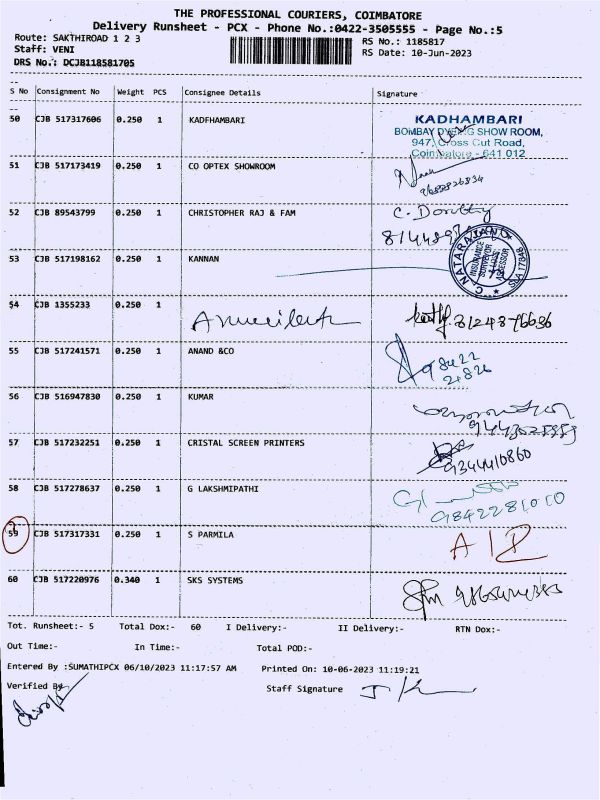 THE PROFESSIONAL COURIERS, COIMBATORE
Delivery Runsheet - PCX - Phone No.:0422-3505555 - Page No.:5
Route: SAKTHIROAD 1 2 3 RS No.: 1185817
Staff: VENI RS Date: 10-Jun-2023
DRS No.: DCJB118581705
S No Consignment No Weight PCS Consignee Details Signature
50 CJB 517317606 0.250 1 KADFHAMBARI KADHAMBARI
BOMBAY DYEING SHOW ROOM,
947, Cross Cut Road,
Coimbatore - 641 012
51 CJB 517173419 0.250 1 CO OPTEX SHOWROOM
52 CJB 89543799 0.250 1 CHRISTOPHER RAJ & FAM
53 CJB 517198162 0.250 1 KANNAN C. NATARAJAN
INSURANCE
SURVEYOR
& LOSS
ASSESSOR
54 CJB 1355233 0.250 1
55 CJB 517241571 0.250 1 ANAND &CO
56 CJB 516947830 0.250 1 KUMAR
57 CJB 517232251 0.250 1 CRISTAL SCREEN PRINTERS
9344410860
58 CJB 517278637 0.250 1 G LAKSHMIPATHI
9842281010
59 CJB 517317331 0.250 1 S PARMILA
60 CJB 517220976 0.340 1 SKS SYSTEMS
Tot. Runsheet:- 5 Total Dox:- 60 I Delivery:- II Delivery:- RTN Dox:-
Out Time:- In Time:- Total POD:-
Entered By :SUMATHIPCX 06/10/2023 11:17:57 AM Printed On: 10-06-2023 11:19:21
Verified By Staff Signature